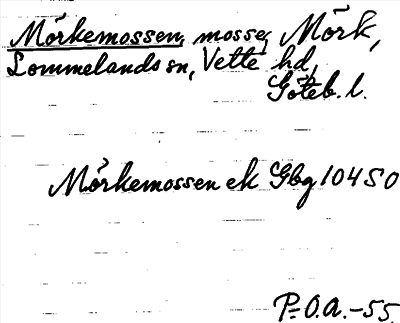 Mörkemossen, mosse, Mörk,
Lommelands sn, Vette hd,
Göteb. l.
Mörkemossen ek Gbg 104 SO
P.O.A.-55.